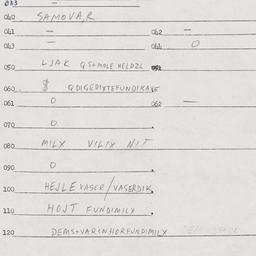 033 —
040 SAMOVAR
041 — 042 —
043 — 044 O
050 LJAK
060 $ QDIGEDIXTEFUNDIKAVE
061 O 062 —
070 O
080 MILX VILIX NIT
090 O
100 HEJLEVASER/VASERDIK
110 HOJT FUNDIMILY
120 DEMSTVARINHORFUNDIMILY